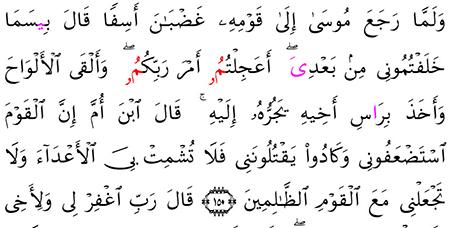 وَلَمَّا رَجَعَ مُوسَىٰ إِلَىٰ قَوْمِهِۦ غَضْبَٰنَ أَسِفًا قَالَ بِيسَمَا
خَلَفْتُمُونِي مِنۢ بَعْدِيَۖ أَعَجِلْتُمُۥ أَمْرَ رَبِّكُمُۥۖ وَأَلْقَى ٱلْأَلْوَاحَ
وَأَخَذَ بِرَاسِ أَخِيهِ يَجُرُّهُۥ إِلَيْهِۚ قَالَ ٱبْنَ أُمَّ إِنَّ ٱلْقَوْمَ
ٱسْتَضْعَفُونِي وَكَادُوا۟ يَقْتُلُونَنِي فَلَا تُشْمِتْ بِيَ ٱلْأَعْدَآءَ وَلَا
تَجْعَلْنِي مَعَ ٱلْقَوْمِ ٱلظَّٰلِمِينَ ۝١٥٠ قَالَ رَبِّ ٱغْفِرْ لِي وَلِأَخِي